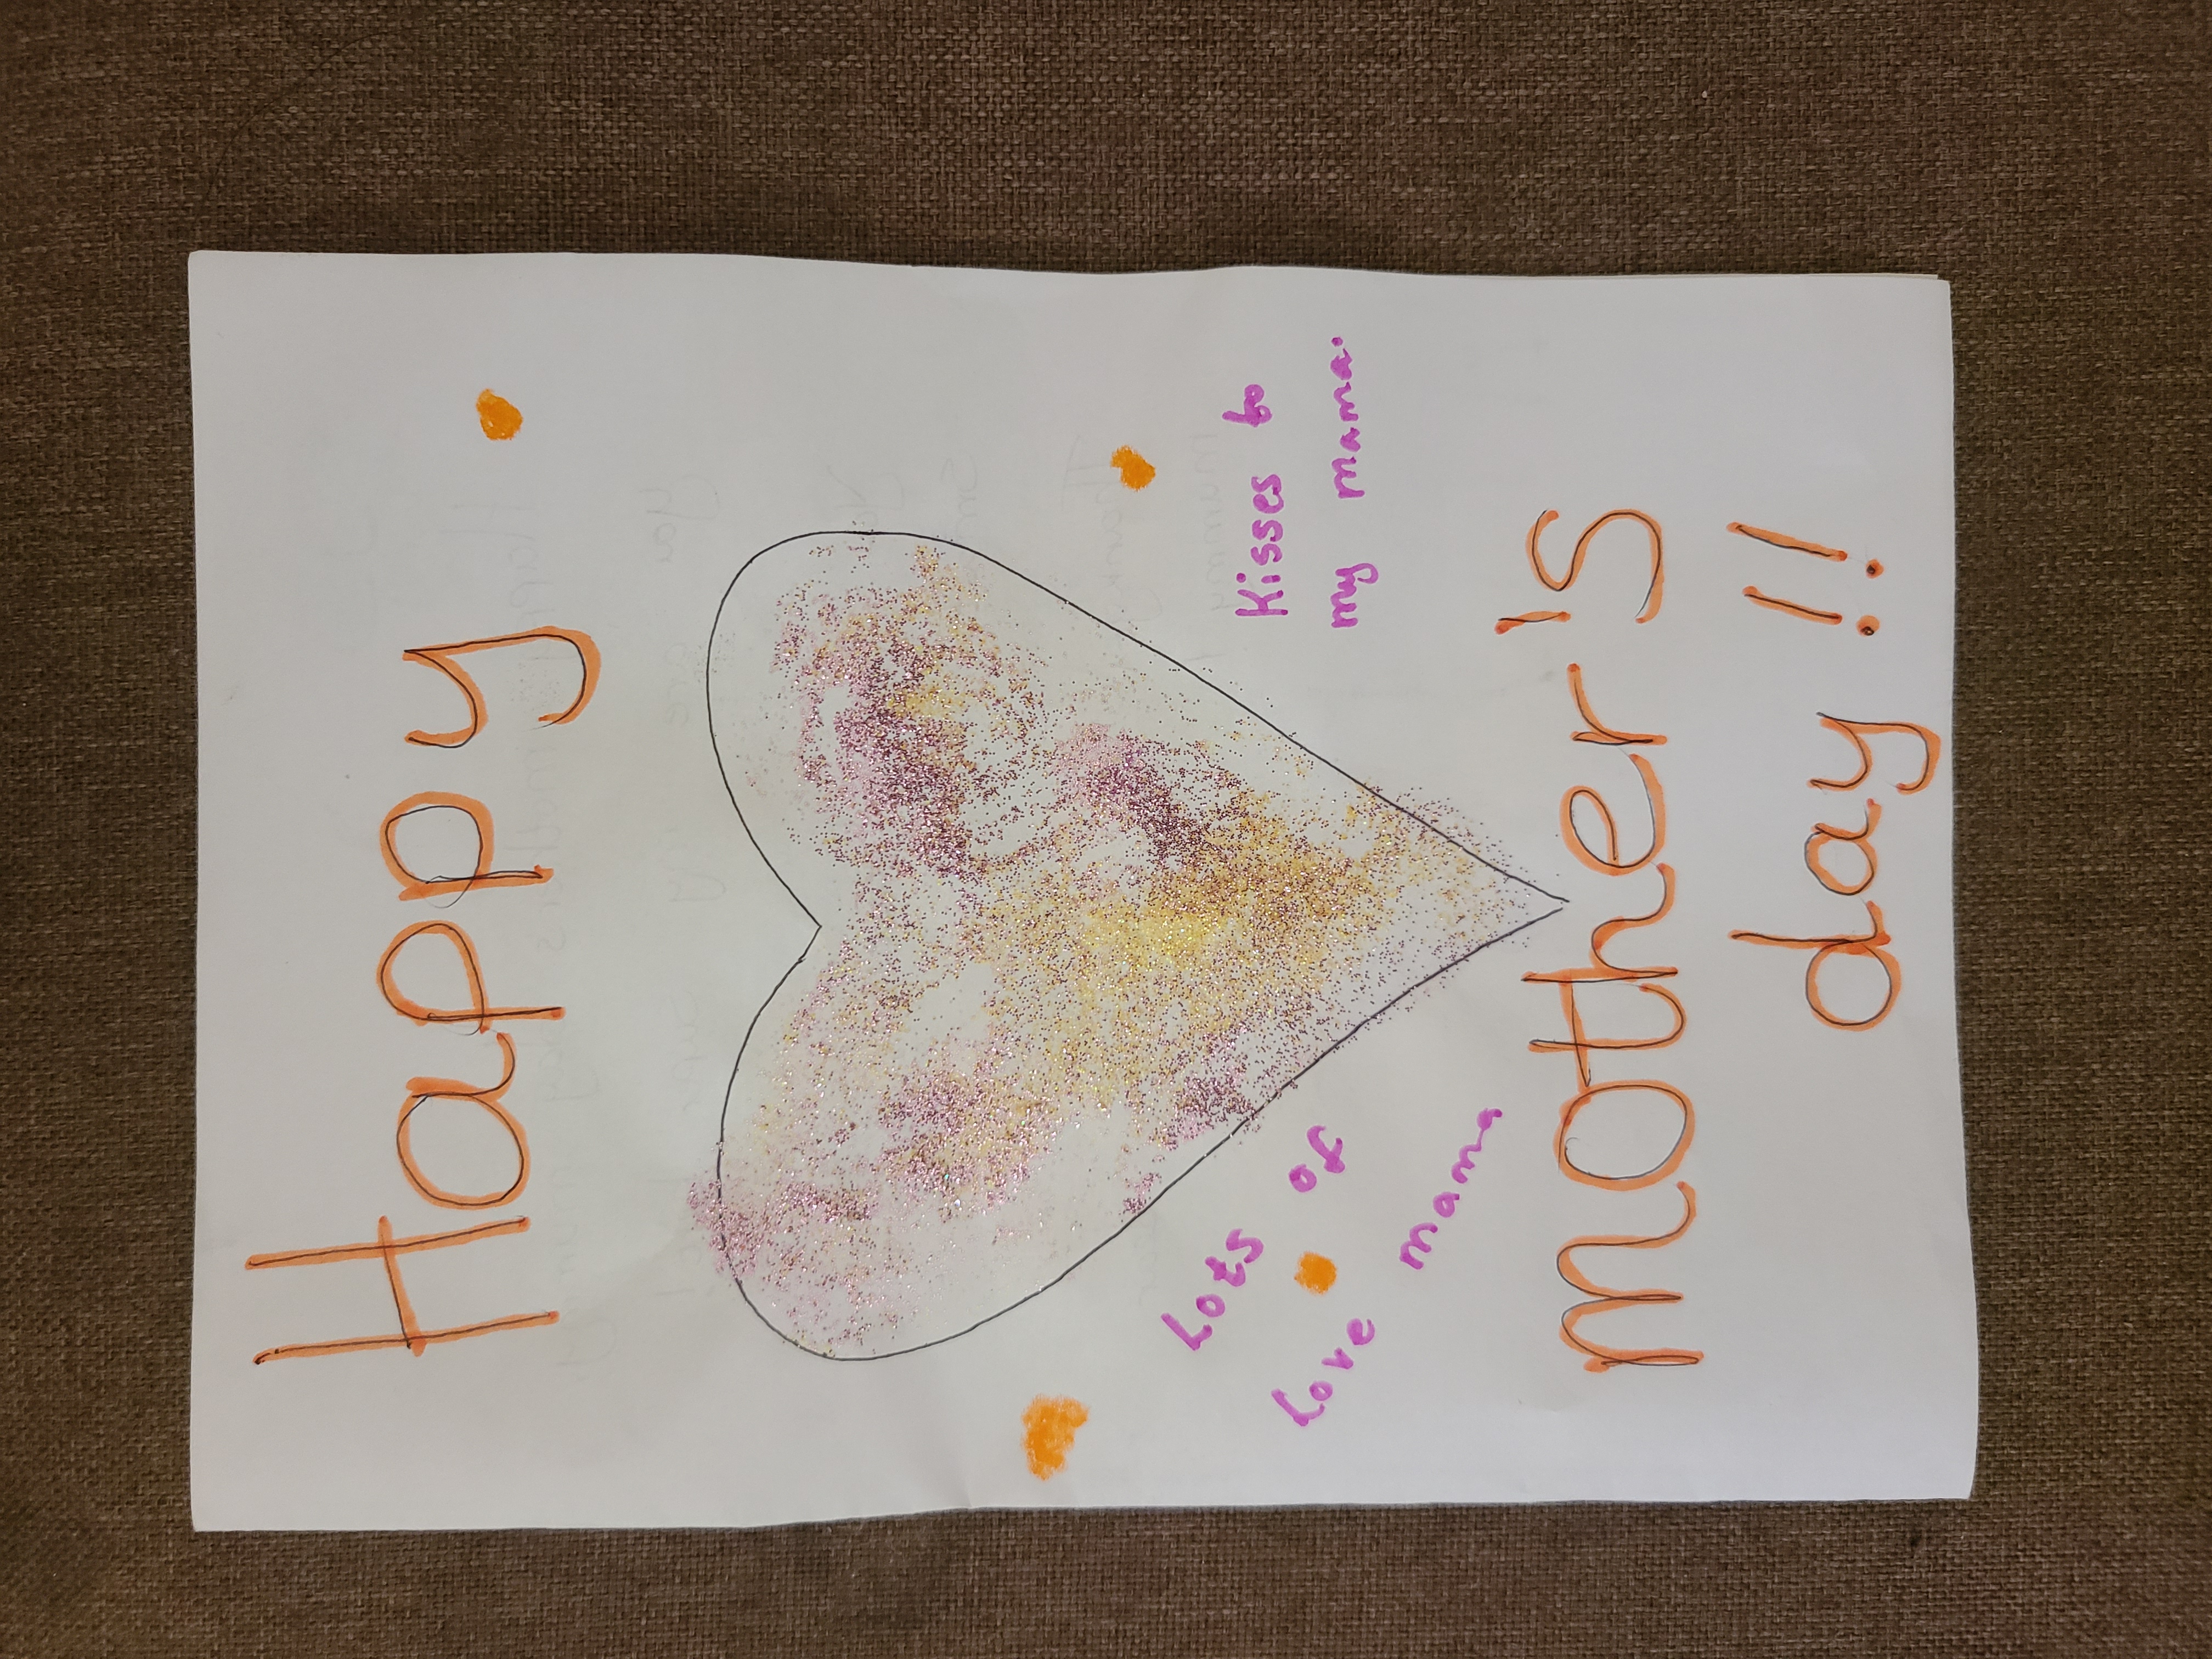 Happy
Lots of
Love mama
Kisses to
my mama.
mother's
day !!